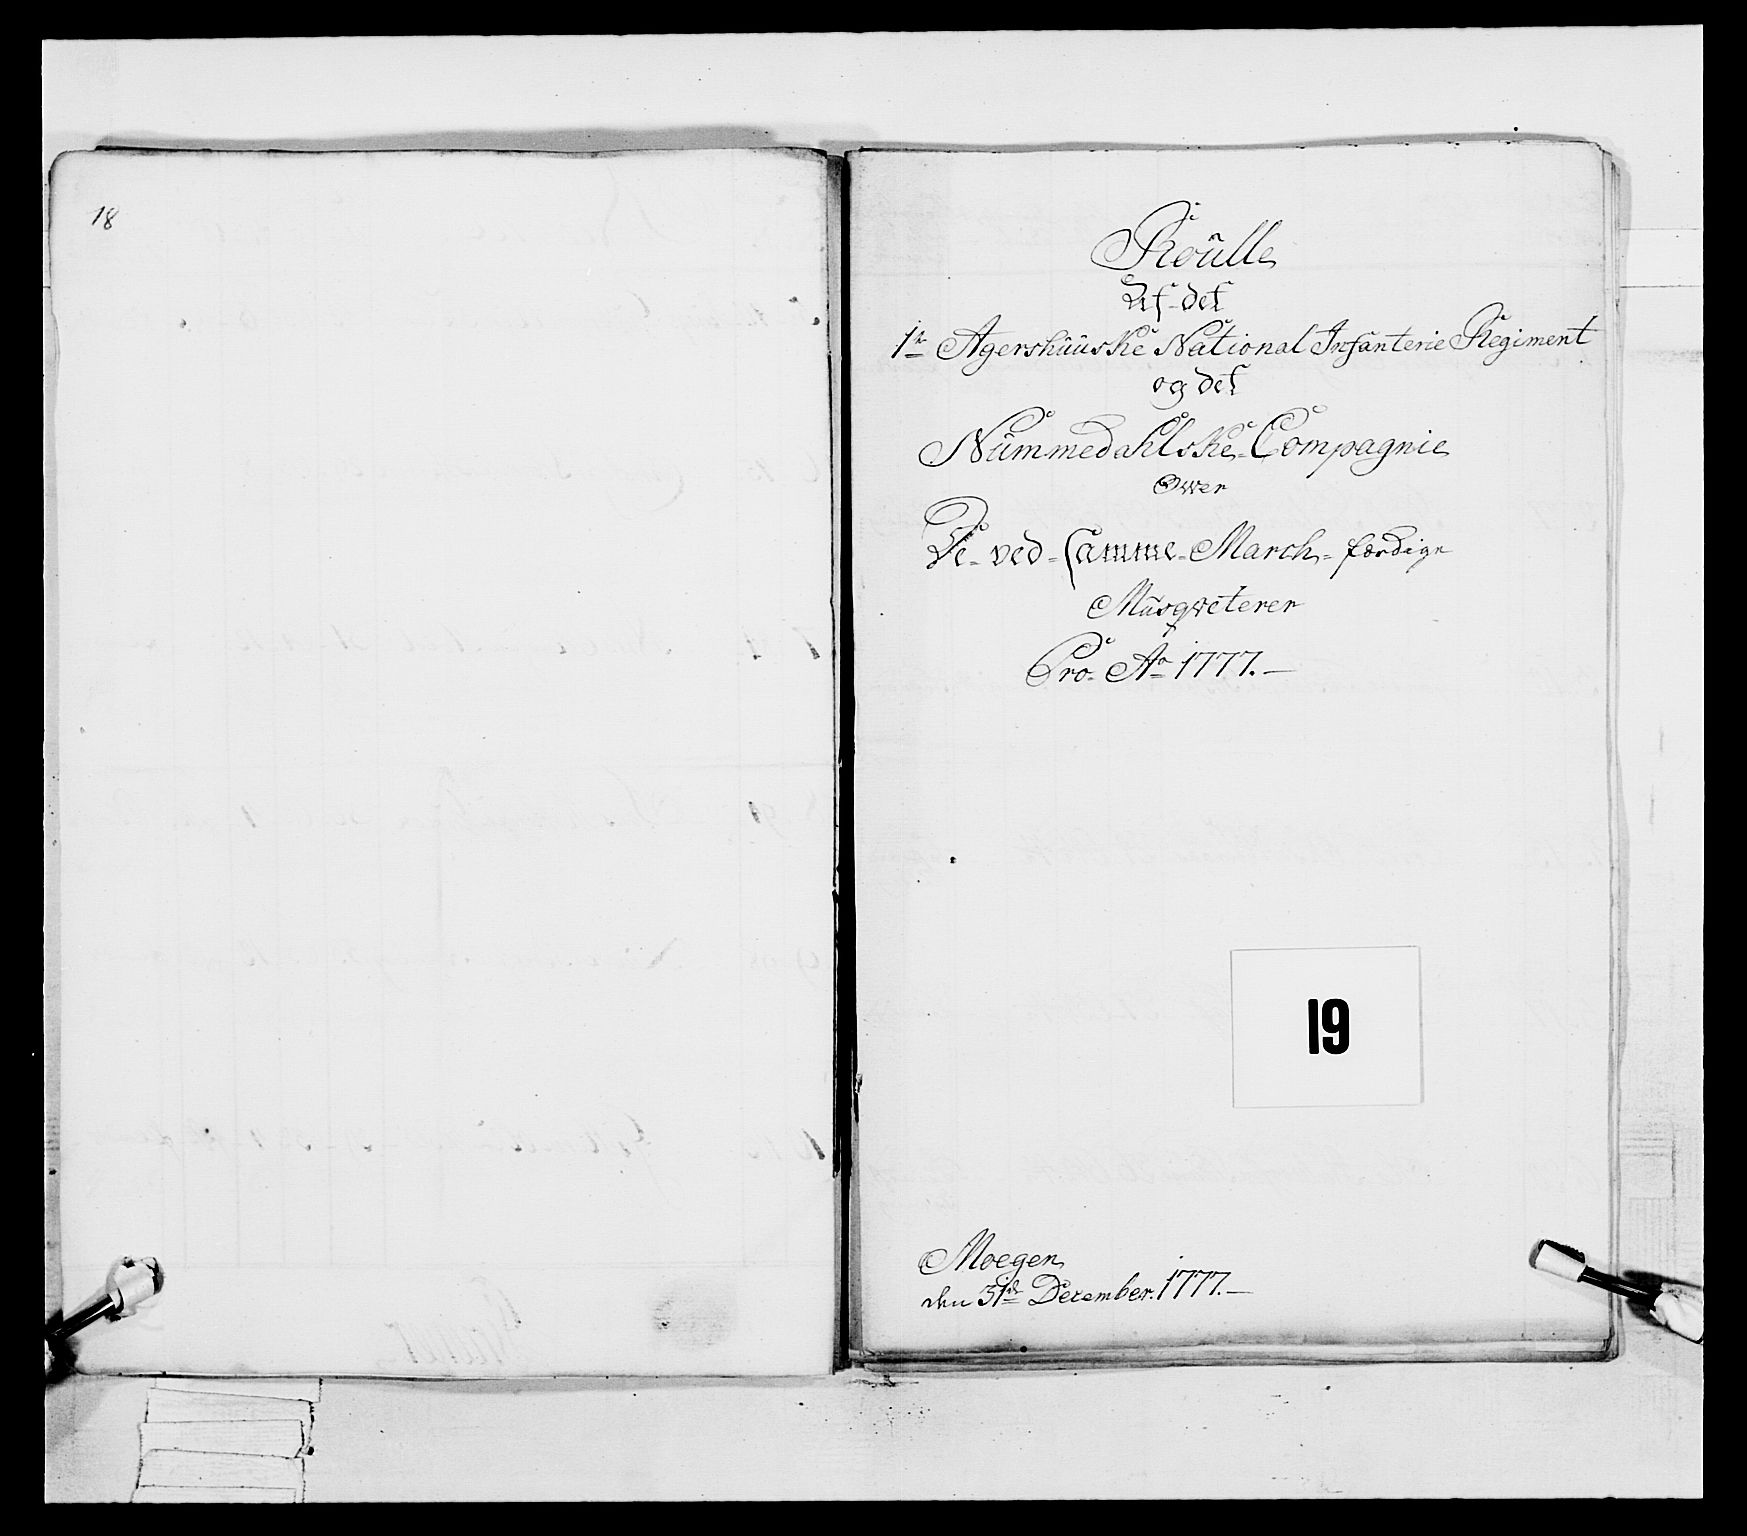 18
Roülle
Af det
1te Agershüüske National Infanterie Regiment
og det
Nümmedahlske Compagnie
Ower
De ved Samme March-færdige
Müsqveterer
Pro Ao 1777.
19
Moegen
den 31te December 1777.